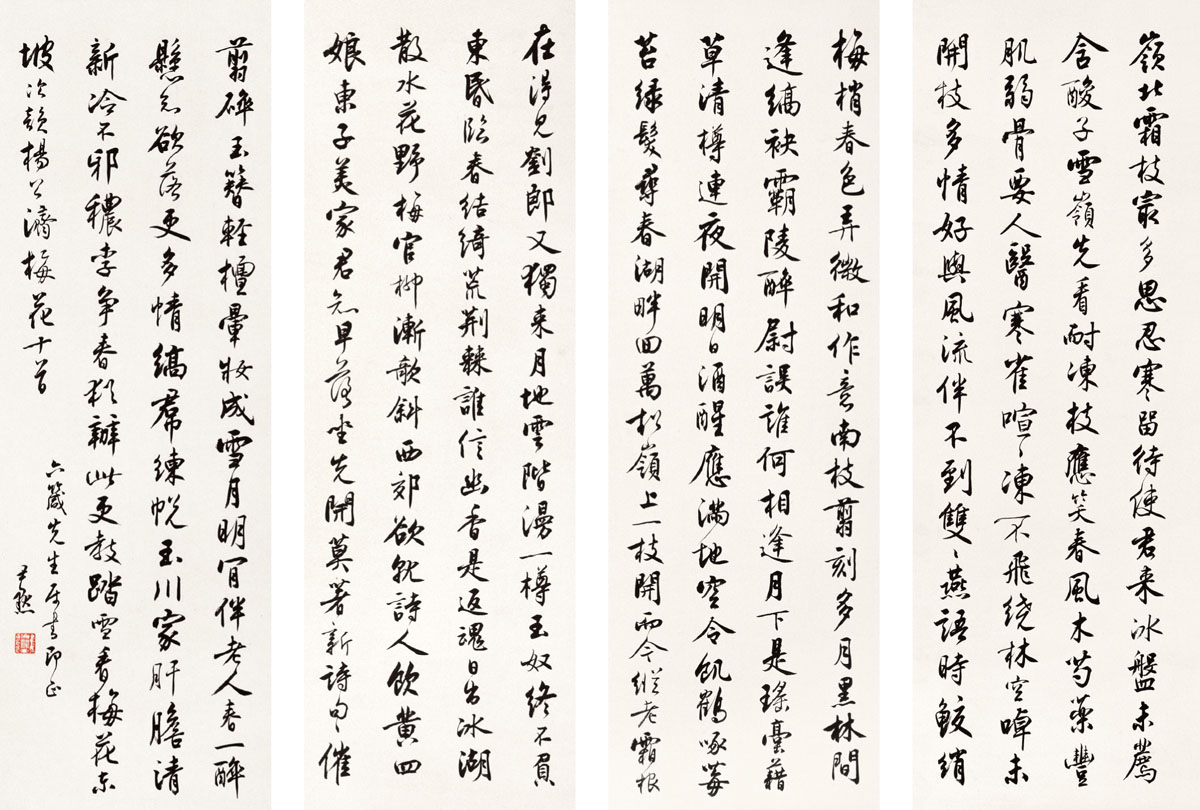 嶺北霜枝最多思忍寒留待使君来冰盤未薦
含酸子雪嶺先看耐凍枝應笑春風木芍藥豐
肌弱骨要人醫寒雀喧〻凍不飛绕林空啅未
開枝多情好與風流伴不到雙〻燕語時鮫綃
梅梢春色弄微和作意南枝翦刻多月黑林間
逢縞袂霸陵醉尉誤誰何相逢月下是瑤臺藉
草清樽連夜開明日酒醒應滿地空令飢鶴啄莓
苔緑髮尋春湖畔回萬松嶺上一枝開而今縱老霜根
在得見劉郎又獨来月地雲階漫一樽玉奴終不負
東昏臨春結綺荒荆棘誰信幽香是返魂日出冰湖
散水花野梅官柳漸欹斜西郊欲就詩人飲黄四
娘東子美家君知早落坐先開莫著新詩句〻催
翦碎玉簪輕檀暈妝成雪月明肯伴老人春一醉
懸知欲落更多情縞帬練帨玉川家肝膽清
新冷不邪穠李争春猶辦此更教踏雪看梅花東
坡次韻楊公濟梅花十首
六箴先生属書即正
尹默